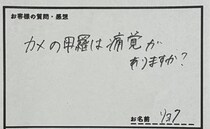 お客様の質問・感想
カメの甲羅は痛覚が
ありますか?
お名前